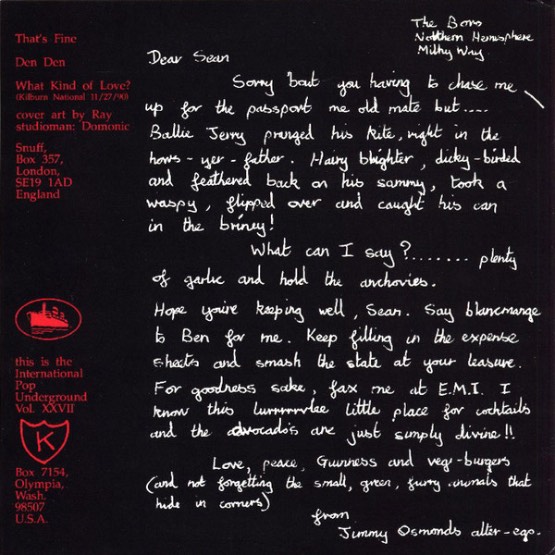 That's Fine
Den Den
What Kind of Love?
(Kilburn National 11/27/90)
cover art by Ray
studioman: Domonic
Snuff,
Box 357,
London,
SE19 1AD
England
this is the
International
Pop
Underground
Vol. XXVII
K
Box 7154,
Olympia,
Wash.
98507
U.S.A.
The Bons
Northern Hemisphere
Milky Way
Dear Sean
Sorry 'bout you having to chase me
up for the passport me old mate but....
Ballie Jerry pranged his kite, right in the
hows-yer-father. Hairy blighter, dicky-birded
and feathered back on his sammy, took a
waspy, flipped over and caught his can
in the briney!
What can I say?....... plenty
of garlic and hold the anchovies.
Hope you're keeping well, Sean. Say blancmange
to Ben for me. Keep filling in the expense
sheets and smash the state at your leasure.
For goodness sake, fax me at E.M.I. I
know this little place for cocktails
and the advocado's are just simply divine!!
Love, peace, Guinness and vegi-burgers
(and not forgetting the small, green, furry animals that
hide in corners)
from
Jimmy Osmonds alter-ego.